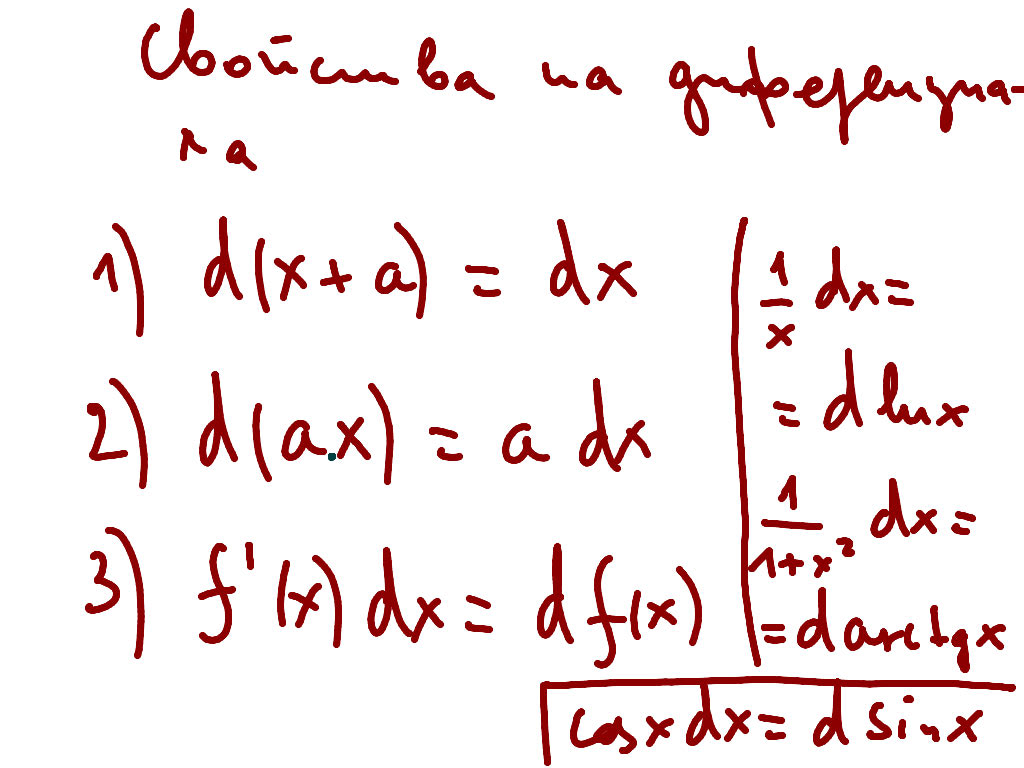 Свойства на диференциа-
ла
1) d(x+a) = dx
2) d(a.x) = a dx
3) f'(x) dx = d f(x)
1/x dx =
= d lnx
1/(1+x²) dx =
= d arctgx
cosx dx = d sinx